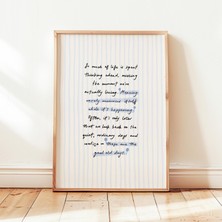 So much of life is spent
thinking ahead, missing
the moment we're
actually living. Missing
every minute of it
while it's happening.
Often, it's only later
that we look back on the
quiet, ordinary days and
realize "these are the
good old days."